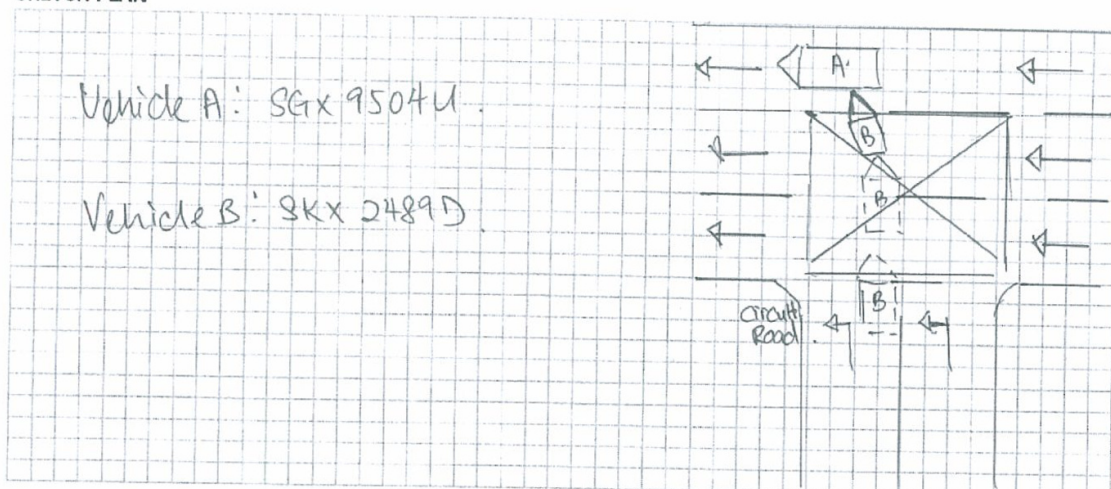 Vehicle A: SGX 9504U.
A
B
Vehicle B: SKX 2489D.
B
B
Circuit
Road.